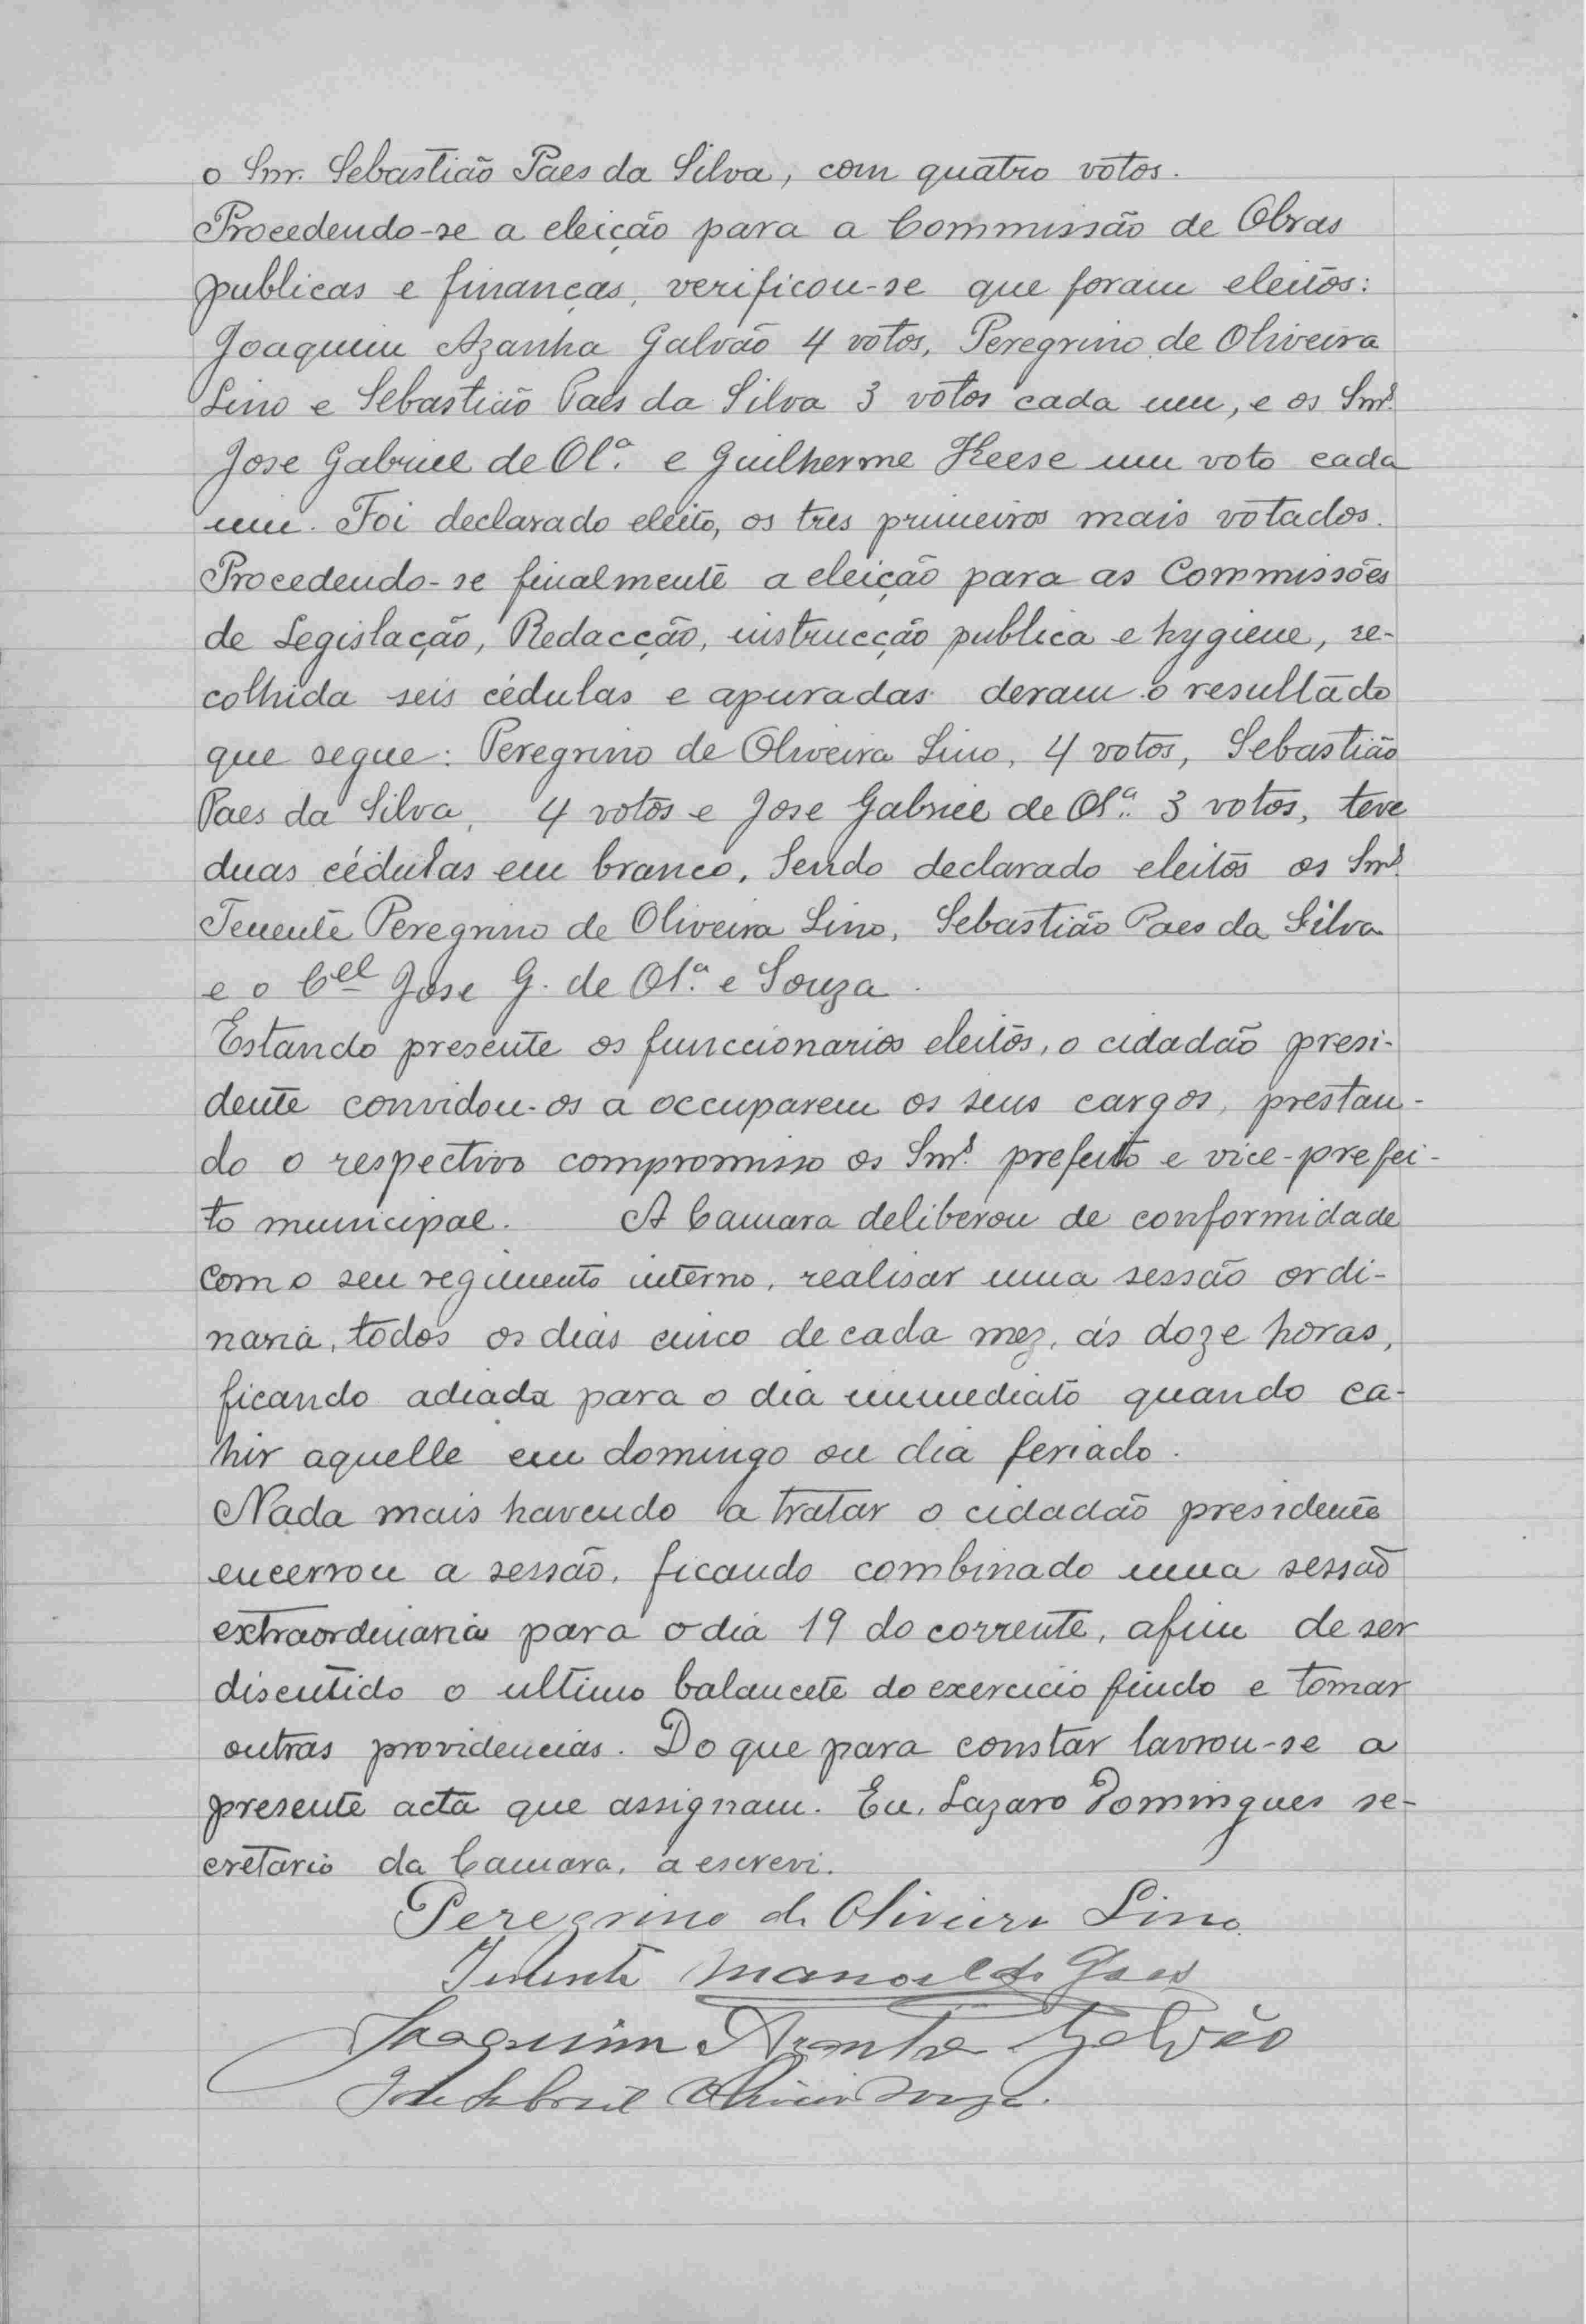 o Snr. Sebastião Paes da Silva, com quatro votos.
Procedendo-se a eleição para a Commissão de Obras
publicas e finanças, verificou-se que foram eleitos:
Joaquim Azanha Galvão 4 votos, Peregrino de Oliveira
Lino e Sebastião Paes da Silva 3 votos cada um, e os Snrs.
Jose Gabriel de Olª. e Guilherme Keese um voto cada
um. Foi declarado eleito, os tres primeiros mais votados.
Procedendo-se finalmente a eleição para as Commissões
de Legislação, Redacção, instrucção publica e hygiene, re-
colhida seis cédulas e apuradas deram o resultado
que segue: Peregrino de Oliveira Lino, 4 votos, Sebastião
Paes da Silva, 4 votos e Jose Gabriel de Olª. 3 votos, teve
duas cédulas em branco, Sendo declarado eleitos os Snrs.
Tenente Peregrino de Oliveira Lino, Sebastião Paes da Silva
e o Cel Jose G. de Olª. e Souza.
Estando presente os funccionarios eleitos, o cidadão presi-
dente convidou-os a occuparem os seus cargos, prestan-
do o respectivo compromisso os Snrs. prefeito e vice-prefei-
to municipal. A Camara deliberou de conformidade
com o seu regimento interno, realisar uma sessão ordi-
naria, todos os dias cinco de cada mez, ás doze horas,
ficando adiada para o dia immediato quando ca-
hir aquelle em domingo ou dia feriado.
Nada mais havendo a tratar o cidadão presidente
encerrou a sessão, ficando combinado uma sessão
extraordinaria para o dia 19 do corrente, afim de ser
discutido o ultimo balancete do exercicio findo e tomar
outras providencias. Do que para constar lavrou-se a
presente acta que assignam. Eu, Lazaro Domingues se-
cretario da Camara, a escrevi.
Peregrino de Oliveira Lino
Tenente Manoel de
Joaquim Azanha Galvão
Jose Gabriel Oliveira Souza.